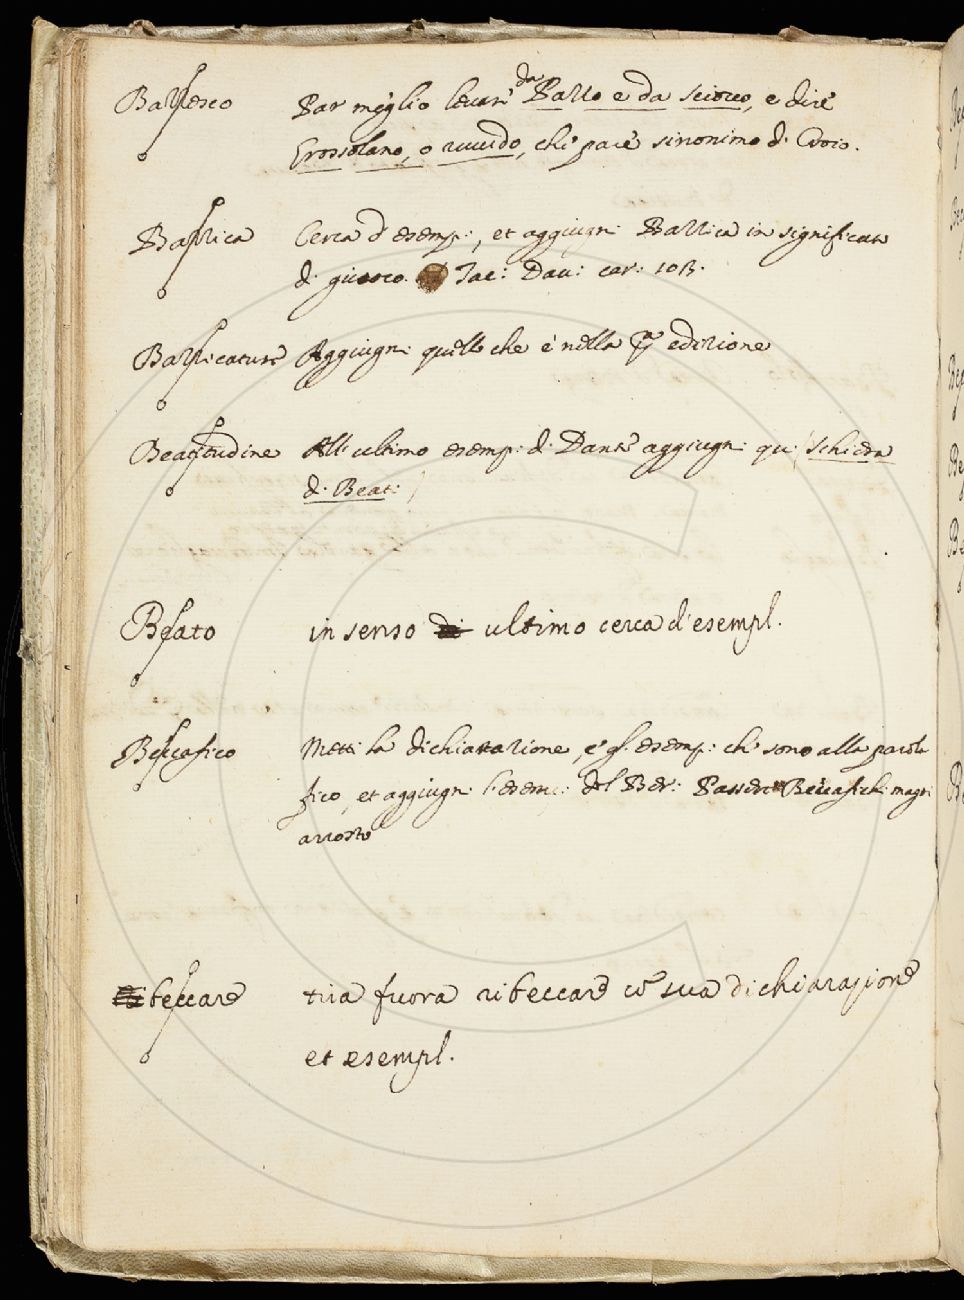 Bazzesco Par meglio levare da Bazzo e da sciocco, e dire
Grossolano, o ruvido, che pare sinonimo di Crojo.
Bazzica Cerca d'esemp:, et aggiugni Bazzica in significato
di giuoco. Tac: Dav: car: 103.
Bazzicature Aggiugni quello che è nella p.ª edizione
Beatitudine All' ultimo esemp: di Dante aggiugni qui (schiera
di Beati)
Beato in senso ultimo cerca d'esempl.
Beccafico Metti la dichiarazione, e gl' esemp: che sono alla parola
fico, et aggiugni l'esemp: del Ber: Passere e Beccafichi magri
arrosto
beccare tira fuora ribeccare cō sua dichiarazione
et esempl.